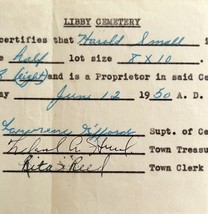 LIBBY CEMETERY
certifies that Harold Small
Half lot size 8 x 10.
(eight) and is a Proprietor in said Ce
ay June 12 1950 A. D.
Supt. of Ce
Town Treasu
Rita S Reed Town Clerk